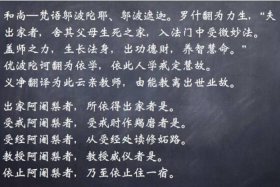 和尚—梵语邬波陀耶、邬波逵迦。罗什翻为力生，“夫
出家者，舍其父母生死之家，入法门中受微妙法。
盖师之力，生长法身，出功德财，养智慧命。”
优波陀诃翻为依学，依此人学戒定慧故。
义净翻译为此云亲教师，由能教离出世业故。
出家阿阇梨者，所依得出家者是。
受戒阿阇梨者，受戒时作羯磨者是。
受经阿阇梨者，从受经处读修妬路。
教授阿阇梨者，教授威仪者是。
依止阿阇梨者，乃至依止住一宿。